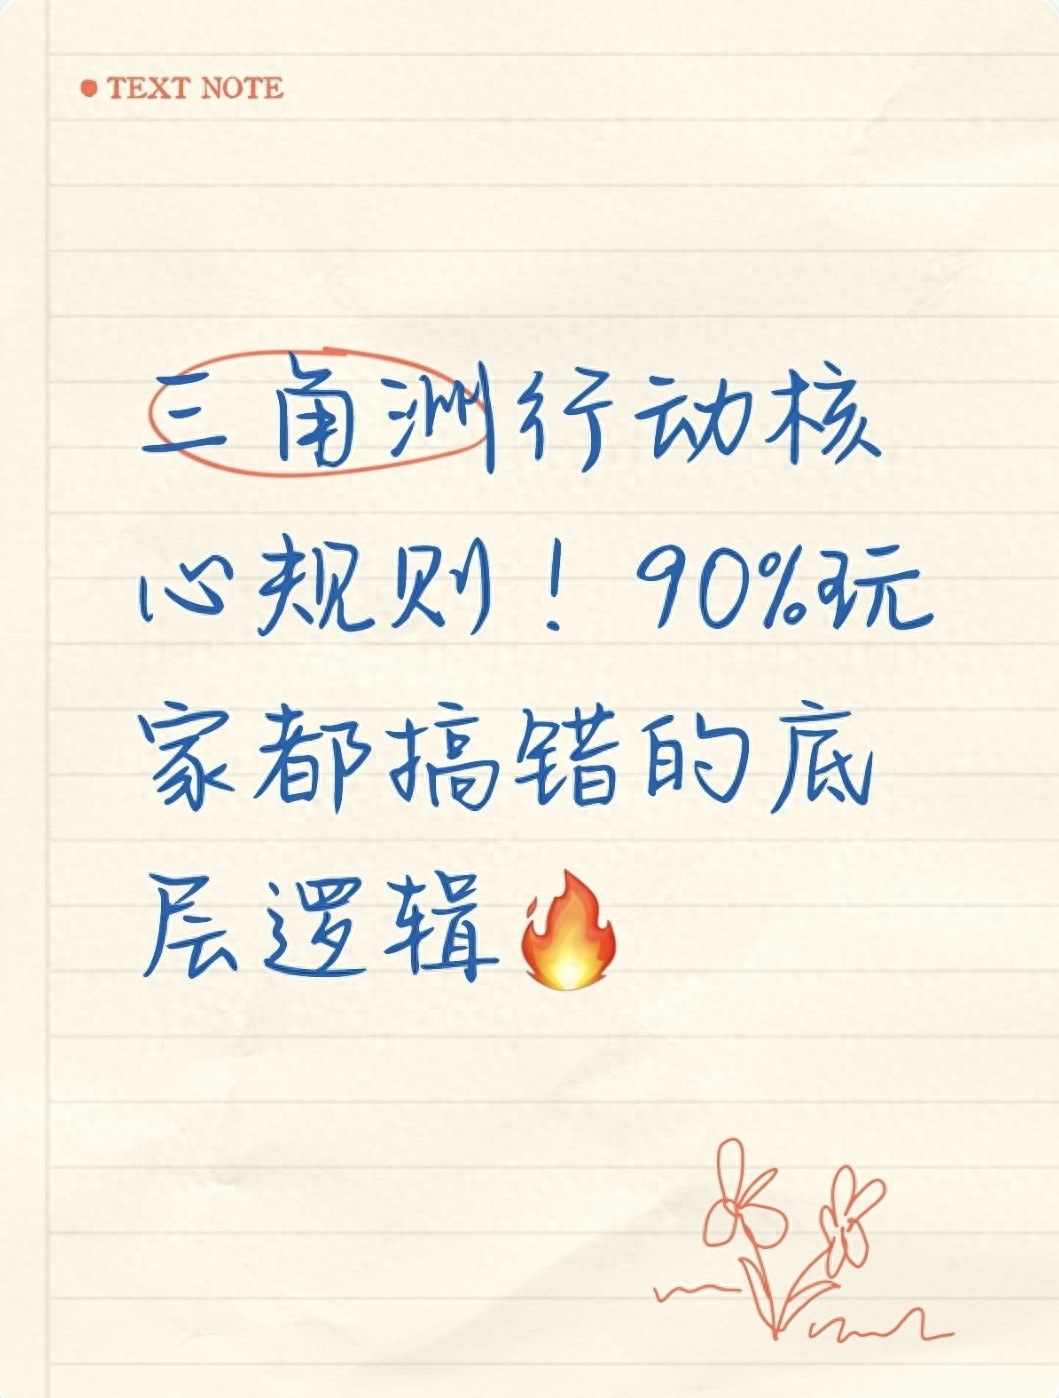 TEXT NOTE
三角洲行动核
心规则！90%玩
家都搞错的底
层逻辑🔥